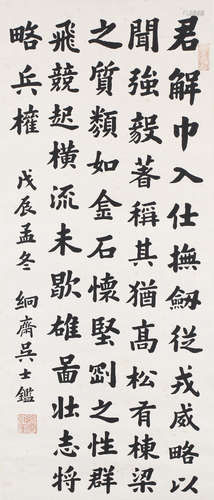 君解巾入仕撫劔從戎威略以
聞強毅著稱其猶髙松有棟梁
之質類如金石懷堅剄之性群
飛競起橫流未歇雄啚壯志將
略兵權 戊辰孟冬 絅齋吳士鑑